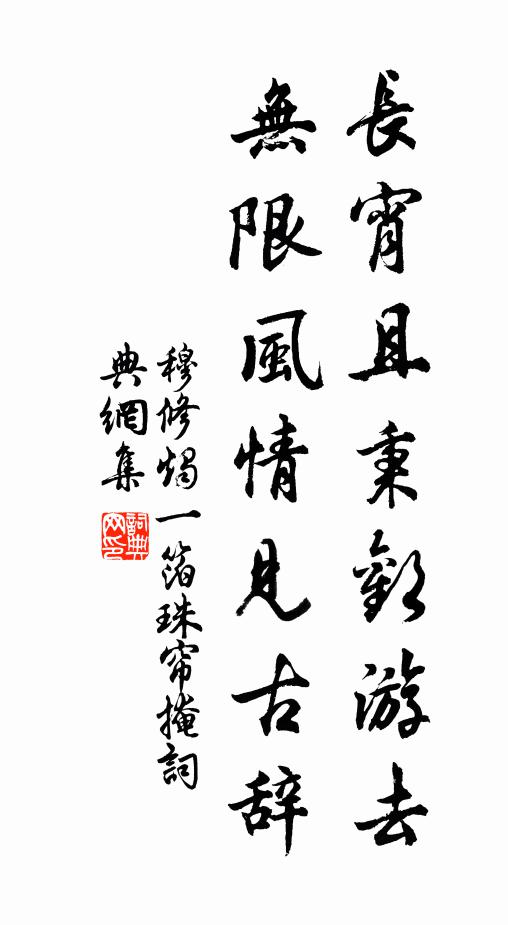 長宵且秉歡游去
無限風情見古辞
穆修燭一箔珠帘掩詞
典網集
詞典
网印